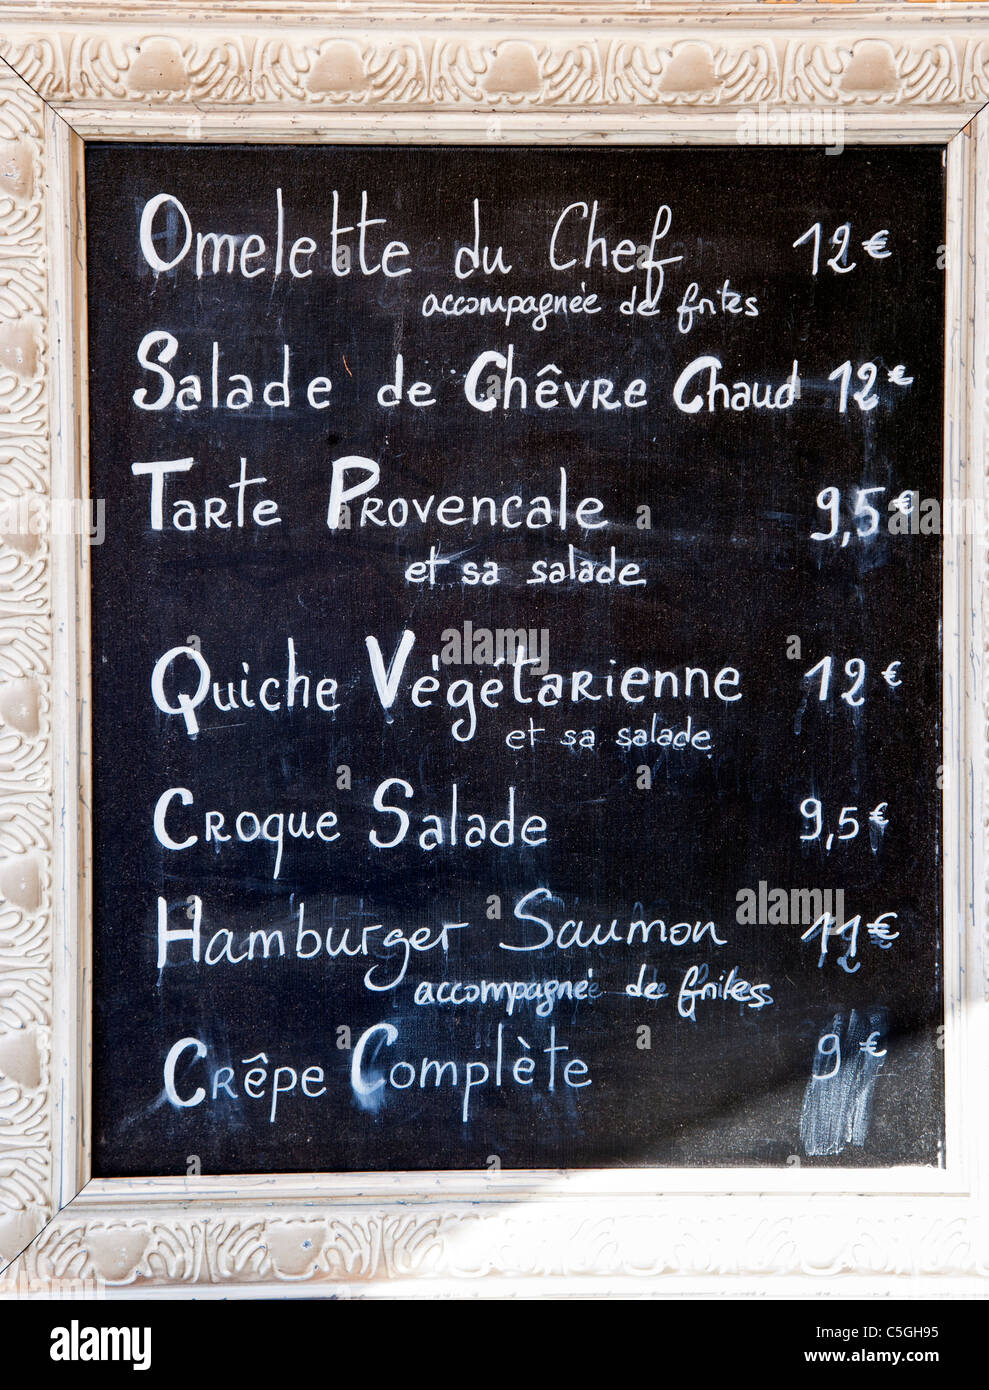 Omelette du Chef 12€
accompagnée de frites
Salade de Chêvre Chaud 12€
Tarte Provencale 9,5€
et sa salade
Quiche Végétarienne 12€
et sa salade
Croque Salade 9,5€
Hamburger Saumon 11€
accompagnée de frites
Crêpe Complète 9€
alamy
alamy stock photo
C5GH95
www.alamy.com